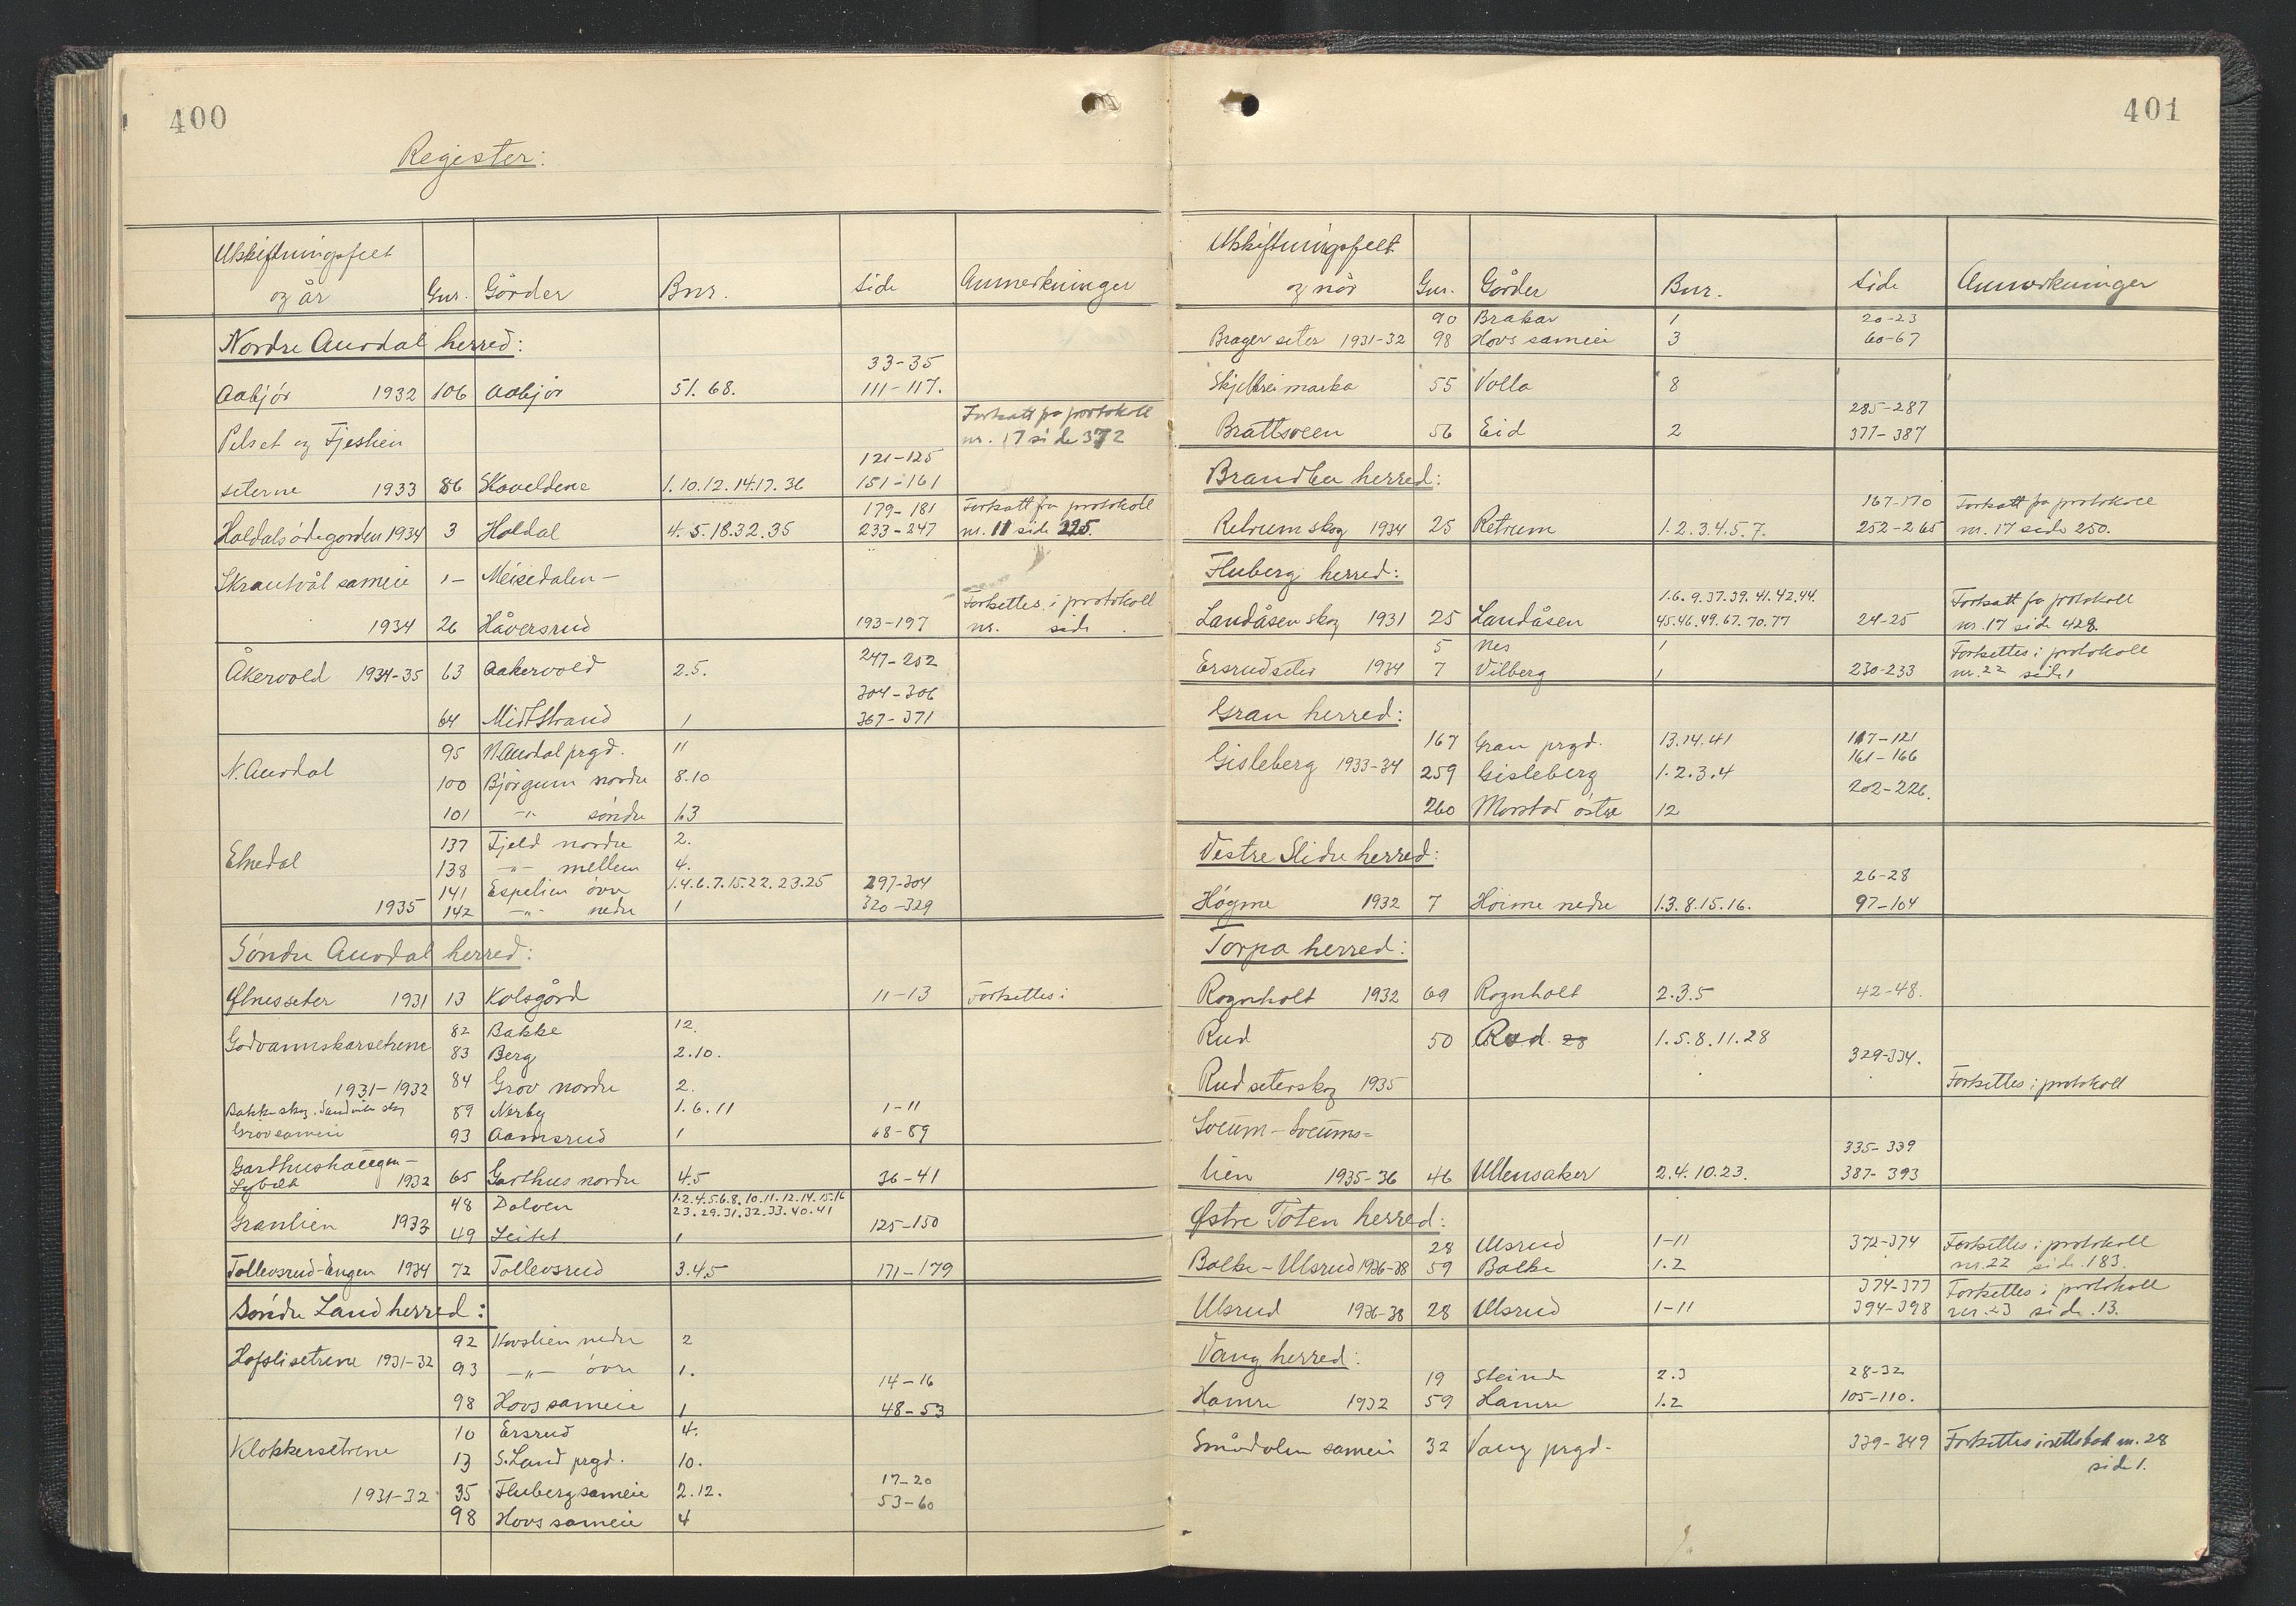 400
Register:
Utskiftningsfelt
og år Gnr. Gårder Bnr. Side Anmerkninger
Nordre Aurdal herred:
33-35
Aabjór 1932 106 Aabjór 51. 68. 111-117.
Fortsatt fra protokoll
Pelset og Fjeslien nr. 17 side 372
121-125
seterne 1933 86 Skoveldene 1.10.12.14.17.36 151-161
179-181 Fortsatt fra protokoll
Haldalsódegarden 1934 3 Haldal 4.5.18.32.35 233-247 nr. 11 side 225.
Skrautvål sameie 1- Meisedalen-
Fortsettes i protokoll
1934 26 Håversrud 193-197 nr. side .
247-252
Åkervold 1934-35 63 Aakervold 2.5.
304-306
64 Midtstrand 1 367-371
95 N.Aurdal prgd. 11
N. Aurdal
100 Bjórgum nordre 8.10
101 -"- søndre 63
137 Fjeld nordre 2.
Etnedal
138 -"- mellem 4.
141 Espelien óvre 1.4.6.7.15.22.23.25 297-304
1935 142 -"- nedre 1 320-329
Søndre Aurdal herred:
Ølnesseter 1931 13 Kolsgård 11-13 Fortsettes i
82 Bakke 12.
Godvannskarsetrene
83 Berg 2.10.
1931-1932 84 Grov nordre 2.
Bakke skog. Sandviken skog 89 Nerby 1.6.11 1-11
Grov sameie 93 Aamsrud 1 68-89
Garthushaugen-
Lybekk 1932 65 Garthus nordre 4.5 36-41
48 Dalven 1.2.4.5.6.8.10.11.12.14.15.16
23.29.31.32.33.40.41
Granlien 1933 125-150
49 Leitet 1
Tollevsrud-Engen 1934 72 Tollevsrud 3.4.5 171-179
Søndre Land herred:
92 Hovslien nedre 2
Hofslisetrene 1931-32
93 -"- óvre 1.
14-16
98 Hovs sameie 1 48-53
10 Ersrud 4.
Klokkersetrene
13 S.Land prgd. 10.
17-20
1931-32 35 Fluberg sameie 2.12.
53-60
98 Hovs sameie 4
401
Utskiftningsfelt
og når Gnr. Gårder Bnr. Side Anmerkninger
90 Brakar 1 20-23
Brager seter 1931-32 98 Hovs sameie 3 60-67
Skjelbreimarka 55 Volla 8
285-287
Brattsveen 56 Eid 2 377-387
Brandbu herred:
167-170 Fortsatt fra protokoll
Retrum skog 1934 25 Retrum 1.2.3.4.5.7. 252-265 nr. 17 side 250.
Fluberg herred:
1.6.9.37.39.41.42.44. Fortsatt fra protokoll
Landåsen skog 1931 25 Landåsen 45.46.49.67.70.77 24-25 nr. 17 side 428.
5 Nes 1 Fortsettes i protokoll
Ersrudseter 1934 7 Vilberg 1 230-233 nr. 22 side 1
Gran herred:
167 Gran prgd. 13.14.41 117-121
161-166
Gisleberg 1933-34 259 Gisleberg 1.2.3.4
202-226.
260 Morstad óstre 12
Vestre Slidre herred:
26-28
Høgme 1932 7 Hóime nedre 1.3.8.15.16. 97-104
Torpa herred:
Rognholt 1932 69 Rognholt 2.3.5 42-48.
Rud 50 Rud 28 1.5.8.11.28
329-334.
Rud seterskog 1935 Fortsettes i protokoll
Sveum-Sveums=
335-339
lien 1935-36 46 Ullensaker 2.4.10.23. 387-393
Østre Toten herred:
28 Ulsrud 1-11 372-374 Fortsettes i protokoll
Balke-Ulsrud 1936-38 59 Balke 1.2 nr. 22 side 183.
374-377 Fortsettes i protokoll
Ulsrud 1936-38 28 Ulsrud 1-11 394-398 nr. 23 side 13.
Vang herred:
19 Steinde 2.3 28-32
Hamre 1932 59 Hamre 1.2 105-110.
Smådalen sameie 32 Vang prgd. 339-349 Fortsettes i rettsbok nr. 28
side 1.